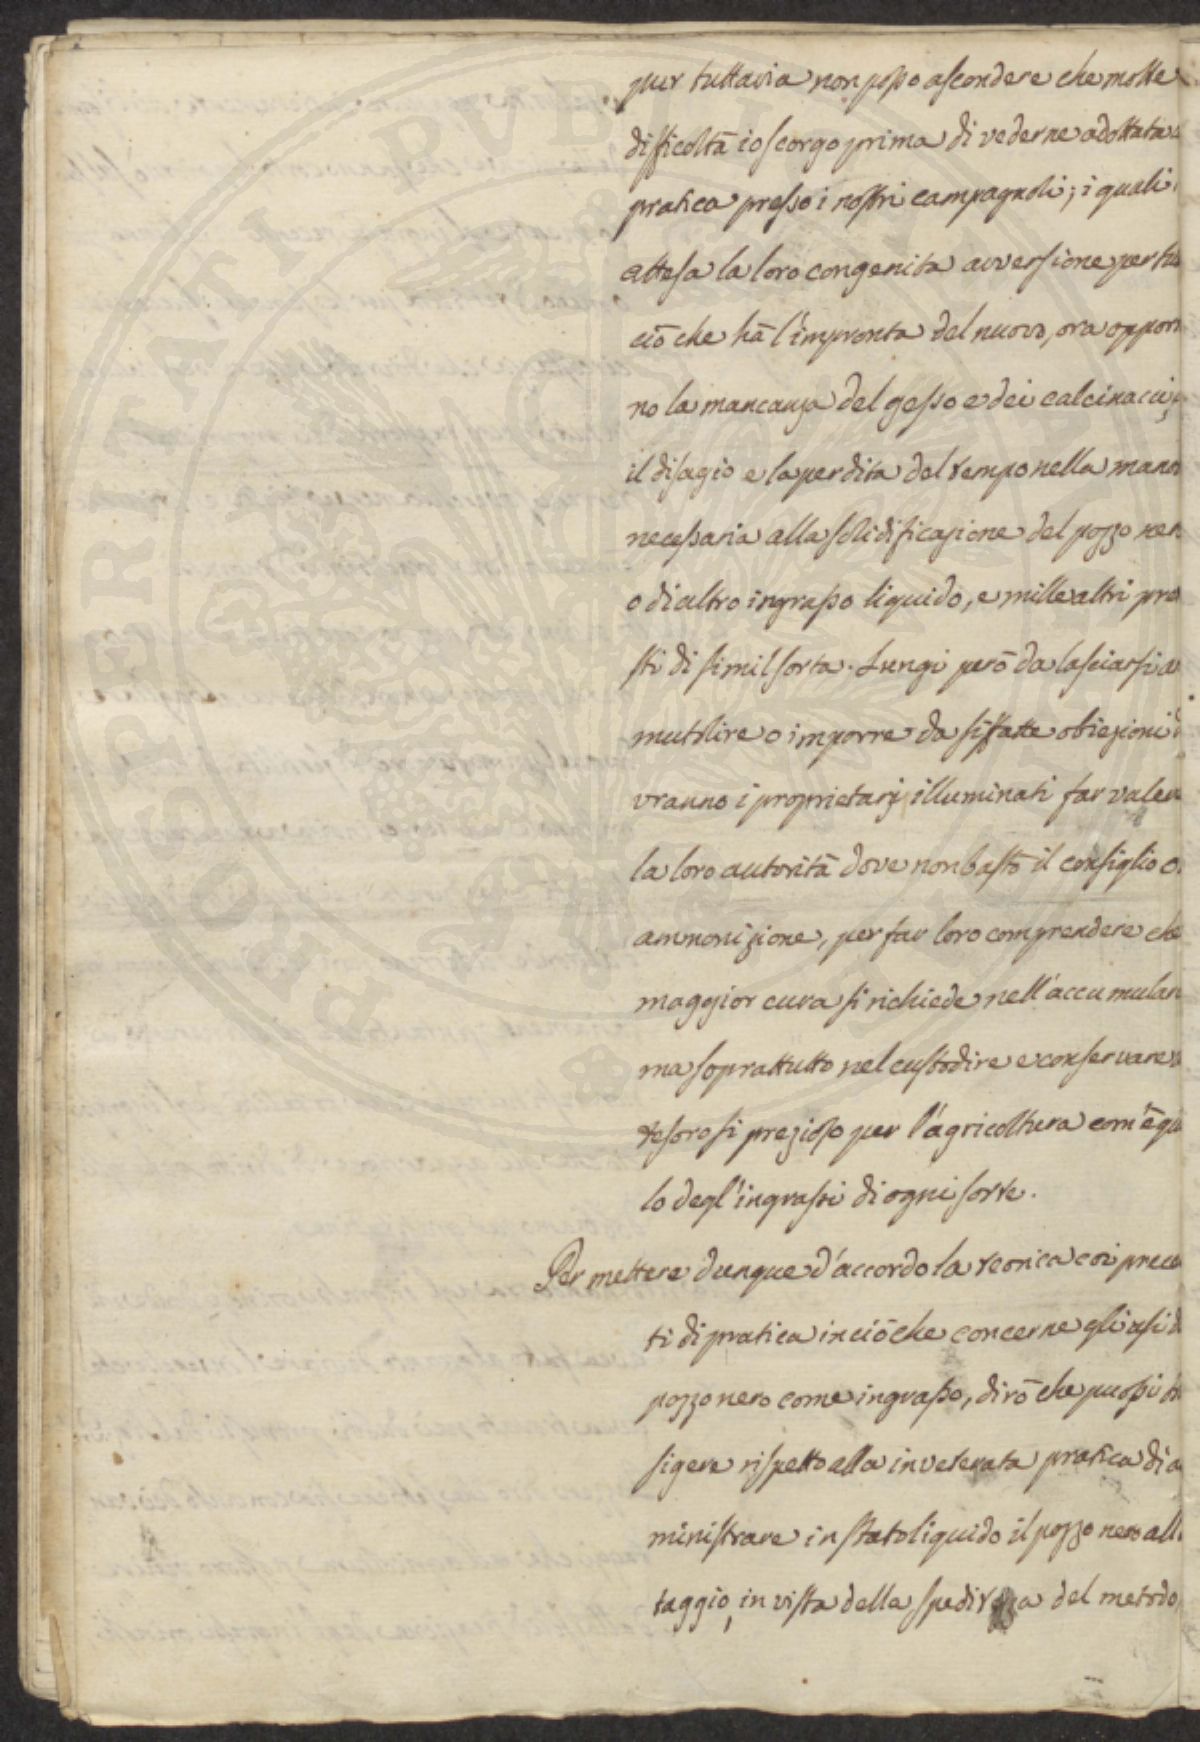 pur tuttavia non posso ascondere che molte
difficoltà io scorgo prima di vederne adottata
pratica presso i nostri campagnoli; i quali
attesa la loro congenita avversione per tu
ciò che hà l'impronta del nuovo, ora oppon
no la mancanza del gesso e dei calcinacci,
il disagio e la perdita del tempo nella mano
necessaria alla solidificazione del pozzo ner
o di altro ingrasso liquido, e mille altri pre
sti di simil sorta. Lungi però da lasciarsi a
mutolire o imporre da siffatte obiezioni d
vranno i proprietarj illuminati far valer
la loro autorità dove non bastò il consiglio o
ammonizione, per far loro comprendere che
maggior cura si richiede nell'accumular
ma soprattutto nel custodire e conservare
tesoro si prezioso per l'agricoltura com'è qu
lo degl'ingrassi di ogni sorte.
Per mettere dunque d'accordo la teorica coi prece
ti di pratica in ciò che concerne gli usi d
pozzo nero come ingrasso, dirò che puossi tr
sigere rispetto alla inveterata pratica di a
ministrare in stato liquido il pozzo nero all
taggio, in vista della speditezza del metodo
PROSPERITATI PVBLI